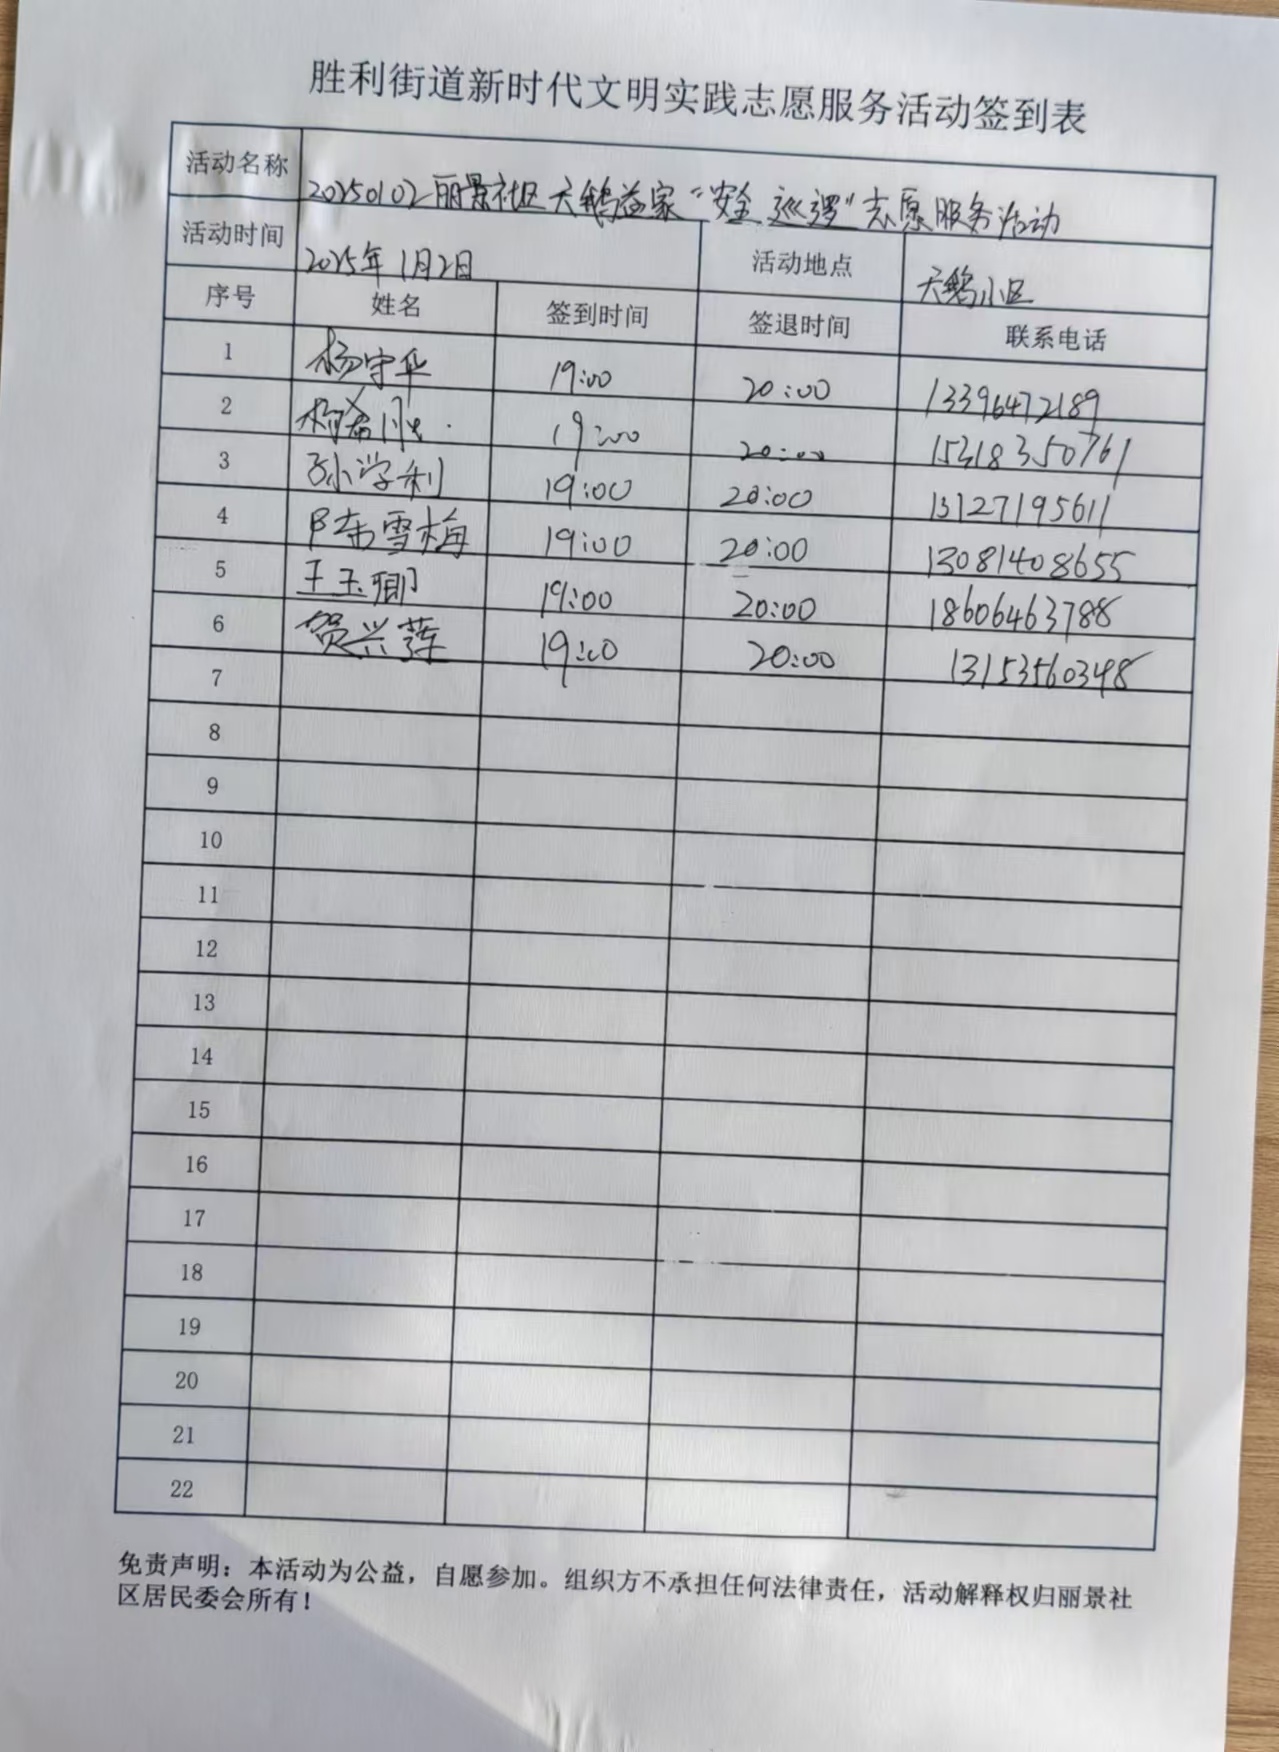 胜利街道新时代文明实践志愿服务活动签到表
活动名称 20250102丽景社区天鹅益家“安全巡逻”志愿服务活动
活动时间 2025年1月2日 活动地点 天鹅小区
序号 姓名 签到时间 签退时间 联系电话
1 杨守华 19:00 20:00 13396472189
2 19:00 20:00 15318350761
3 孙学利 19:00 20:00 13127195611
4 陈雪梅 19:00 20:00 13081408655
5 王玉卿 19:00 20:00 18606463788
6 贺兴莲 19:00 20:00 13153560348
7
8
9
10
11
12
13
14
15
16
17
18
19
20
21
22
免责声明：本活动为公益，自愿参加。组织方不承担任何法律责任，活动解释权归丽景社
区居民委会所有！